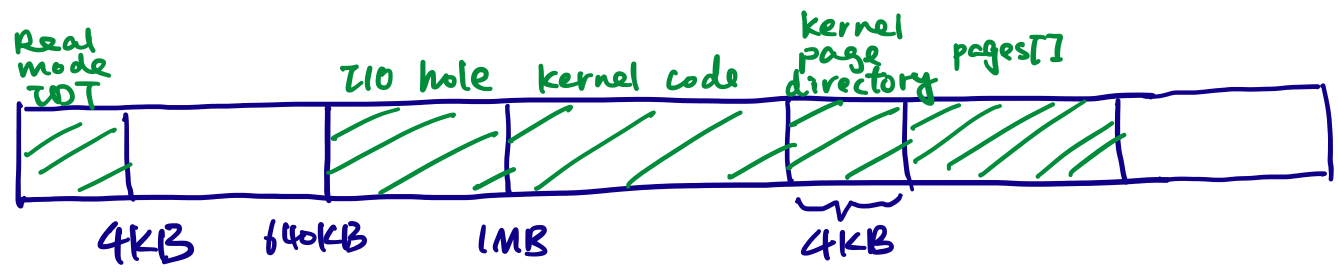 Real
mode
IDT
I/O hole
kernel code
kernel
page
directory
pages[]
4KB
640KB
1MB
4KB